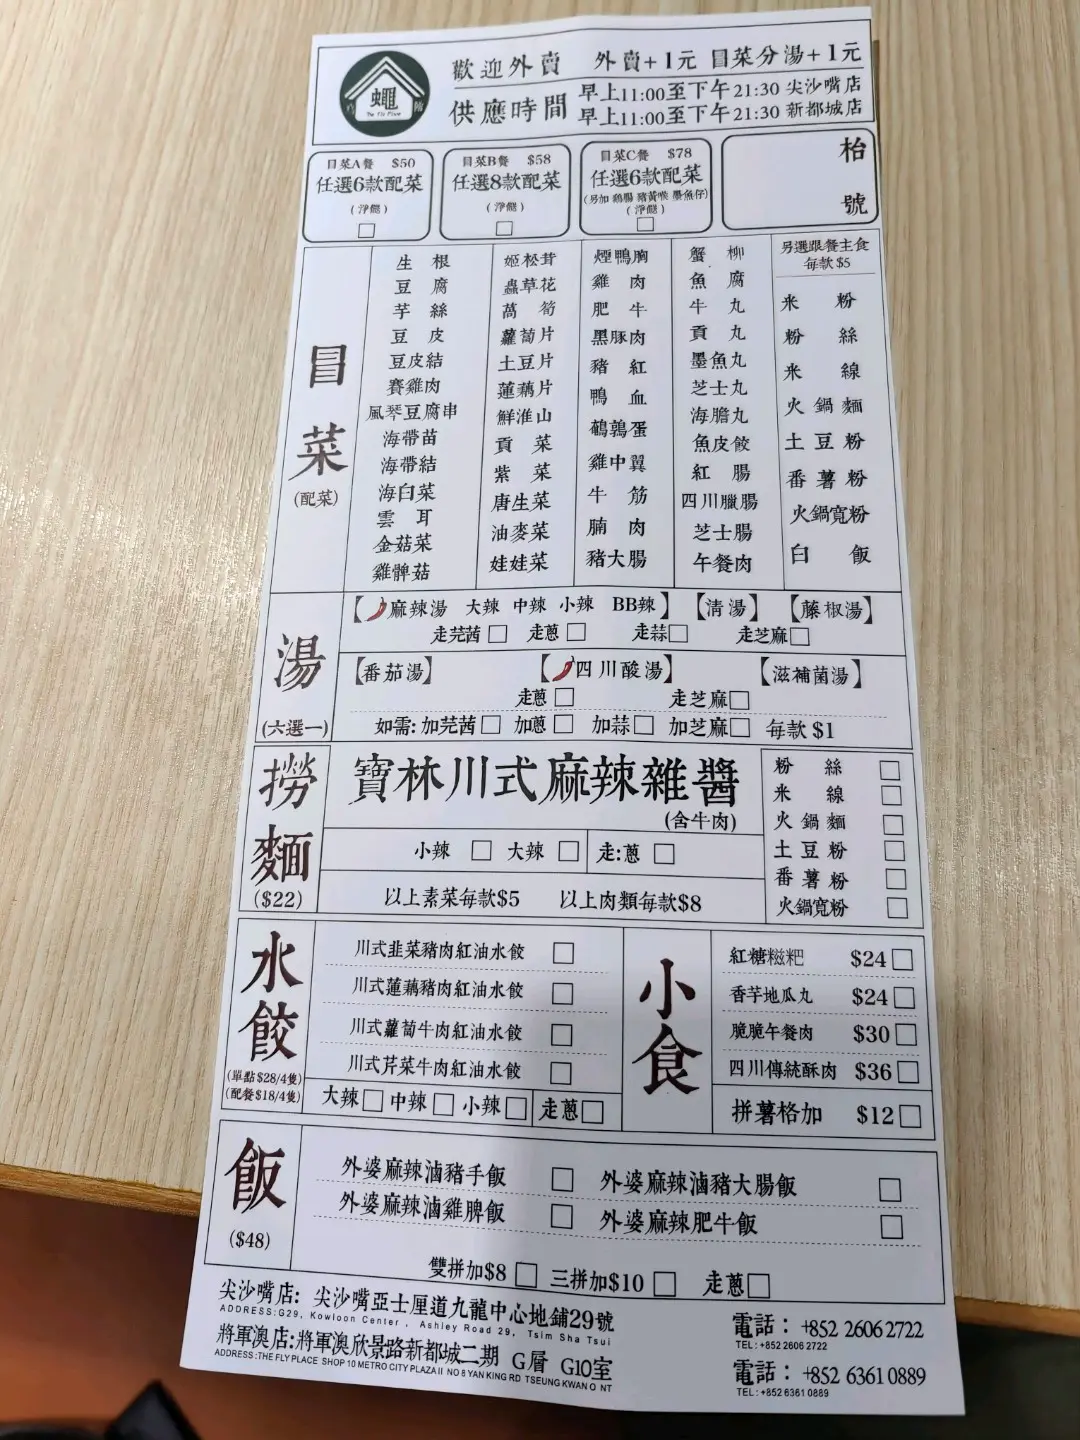 蠅
The Fly Place
歡迎外賣 外賣+1元 冒菜分湯+1元
供應時間
早上11:00至下午21:30 尖沙嘴店
早上11:00至下午21:30 新都城店
冒菜A餐 $50
任選6款配菜
(淨餸)
冒菜B餐 $58
任選8款配菜
(淨餸)
冒菜C餐 $78
任選6款配菜
(另加 鵝腸 豬黃喉 墨魚仔)
(淨餸)
枱號
冒菜
(配菜)
生根
豆腐
芋絲
豆皮
豆皮結
賽雞肉
風琴豆腐串
海帶苗
海帶結
海白菜
雲耳
金菇菜
雞髀菇
姬松茸
蟲草花
萵筍
蘿蔔片
土豆片
蓮藕片
鮮淮山
貢菜
紫菜
唐生菜
油麥菜
娃娃菜
煙鴨胸
雞肉
肥牛
黑豚肉
豬紅
鴨血
鵪鶉蛋
雞中翼
牛筋
腩肉
豬大腸
蟹柳
魚腐
牛丸
貢丸
墨魚丸
芝士丸
海膽丸
魚皮餃
紅腸
四川臘腸
芝士腸
午餐肉
另選跟餐主食
每款$5
米粉
粉絲
米線
火鍋麵
土豆粉
番薯粉
火鍋寬粉
白飯
湯
(六選一)
【麻辣湯 大辣 中辣 小辣 BB辣】【清湯】【藤椒湯】
走芫茜 走蔥 走蒜 走芝麻
【番茄湯】【四川酸湯】【滋補菌湯】
走蔥 走芝麻
如需: 加芫茜 加蔥 加蒜 加芝麻 每款$1
撈麵
($22)
寶林川式麻辣雜醬
(含牛肉)
小辣 大辣 走:蔥
以上素菜每款$5 以上肉類每款$8
粉絲
米線
火鍋麵
土豆粉
番薯粉
火鍋寬粉
水餃
(單點$28/4隻)
(配餐$18/4隻)
川式韭菜豬肉紅油水餃
川式蓮藕豬肉紅油水餃
川式蘿蔔牛肉紅油水餃
川式芹菜牛肉紅油水餃
大辣 中辣 小辣 走蔥
小食
紅糖糍粑 $24
香芋地瓜丸 $24
脆脆午餐肉 $30
四川傳統酥肉 $36
拼薯格加 $12
飯
($48)
外婆麻辣滷豬手飯 外婆麻辣滷豬大腸飯
外婆麻辣滷雞脾飯 外婆麻辣肥牛飯
雙拼加$8 三拼加$10 走蔥
尖沙嘴店: 尖沙嘴亞士厘道九龍中心地鋪29號
ADDRESS:G29, Kowloon Center, Ashley Road 29, Tsim Sha Tsui
電話: +852 2606 2722
TEL: +852 2606 2722
將軍澳店:將軍澳欣景路新都城二期 G層 G10室
ADDRESS :THE FLY PLACE SHOP 10 METRO CITY PLAZA II NO 8 YAN KING RD TSEUNG KWAN O NT
電話: +852 6361 0889
TEL: +852 6361 0889